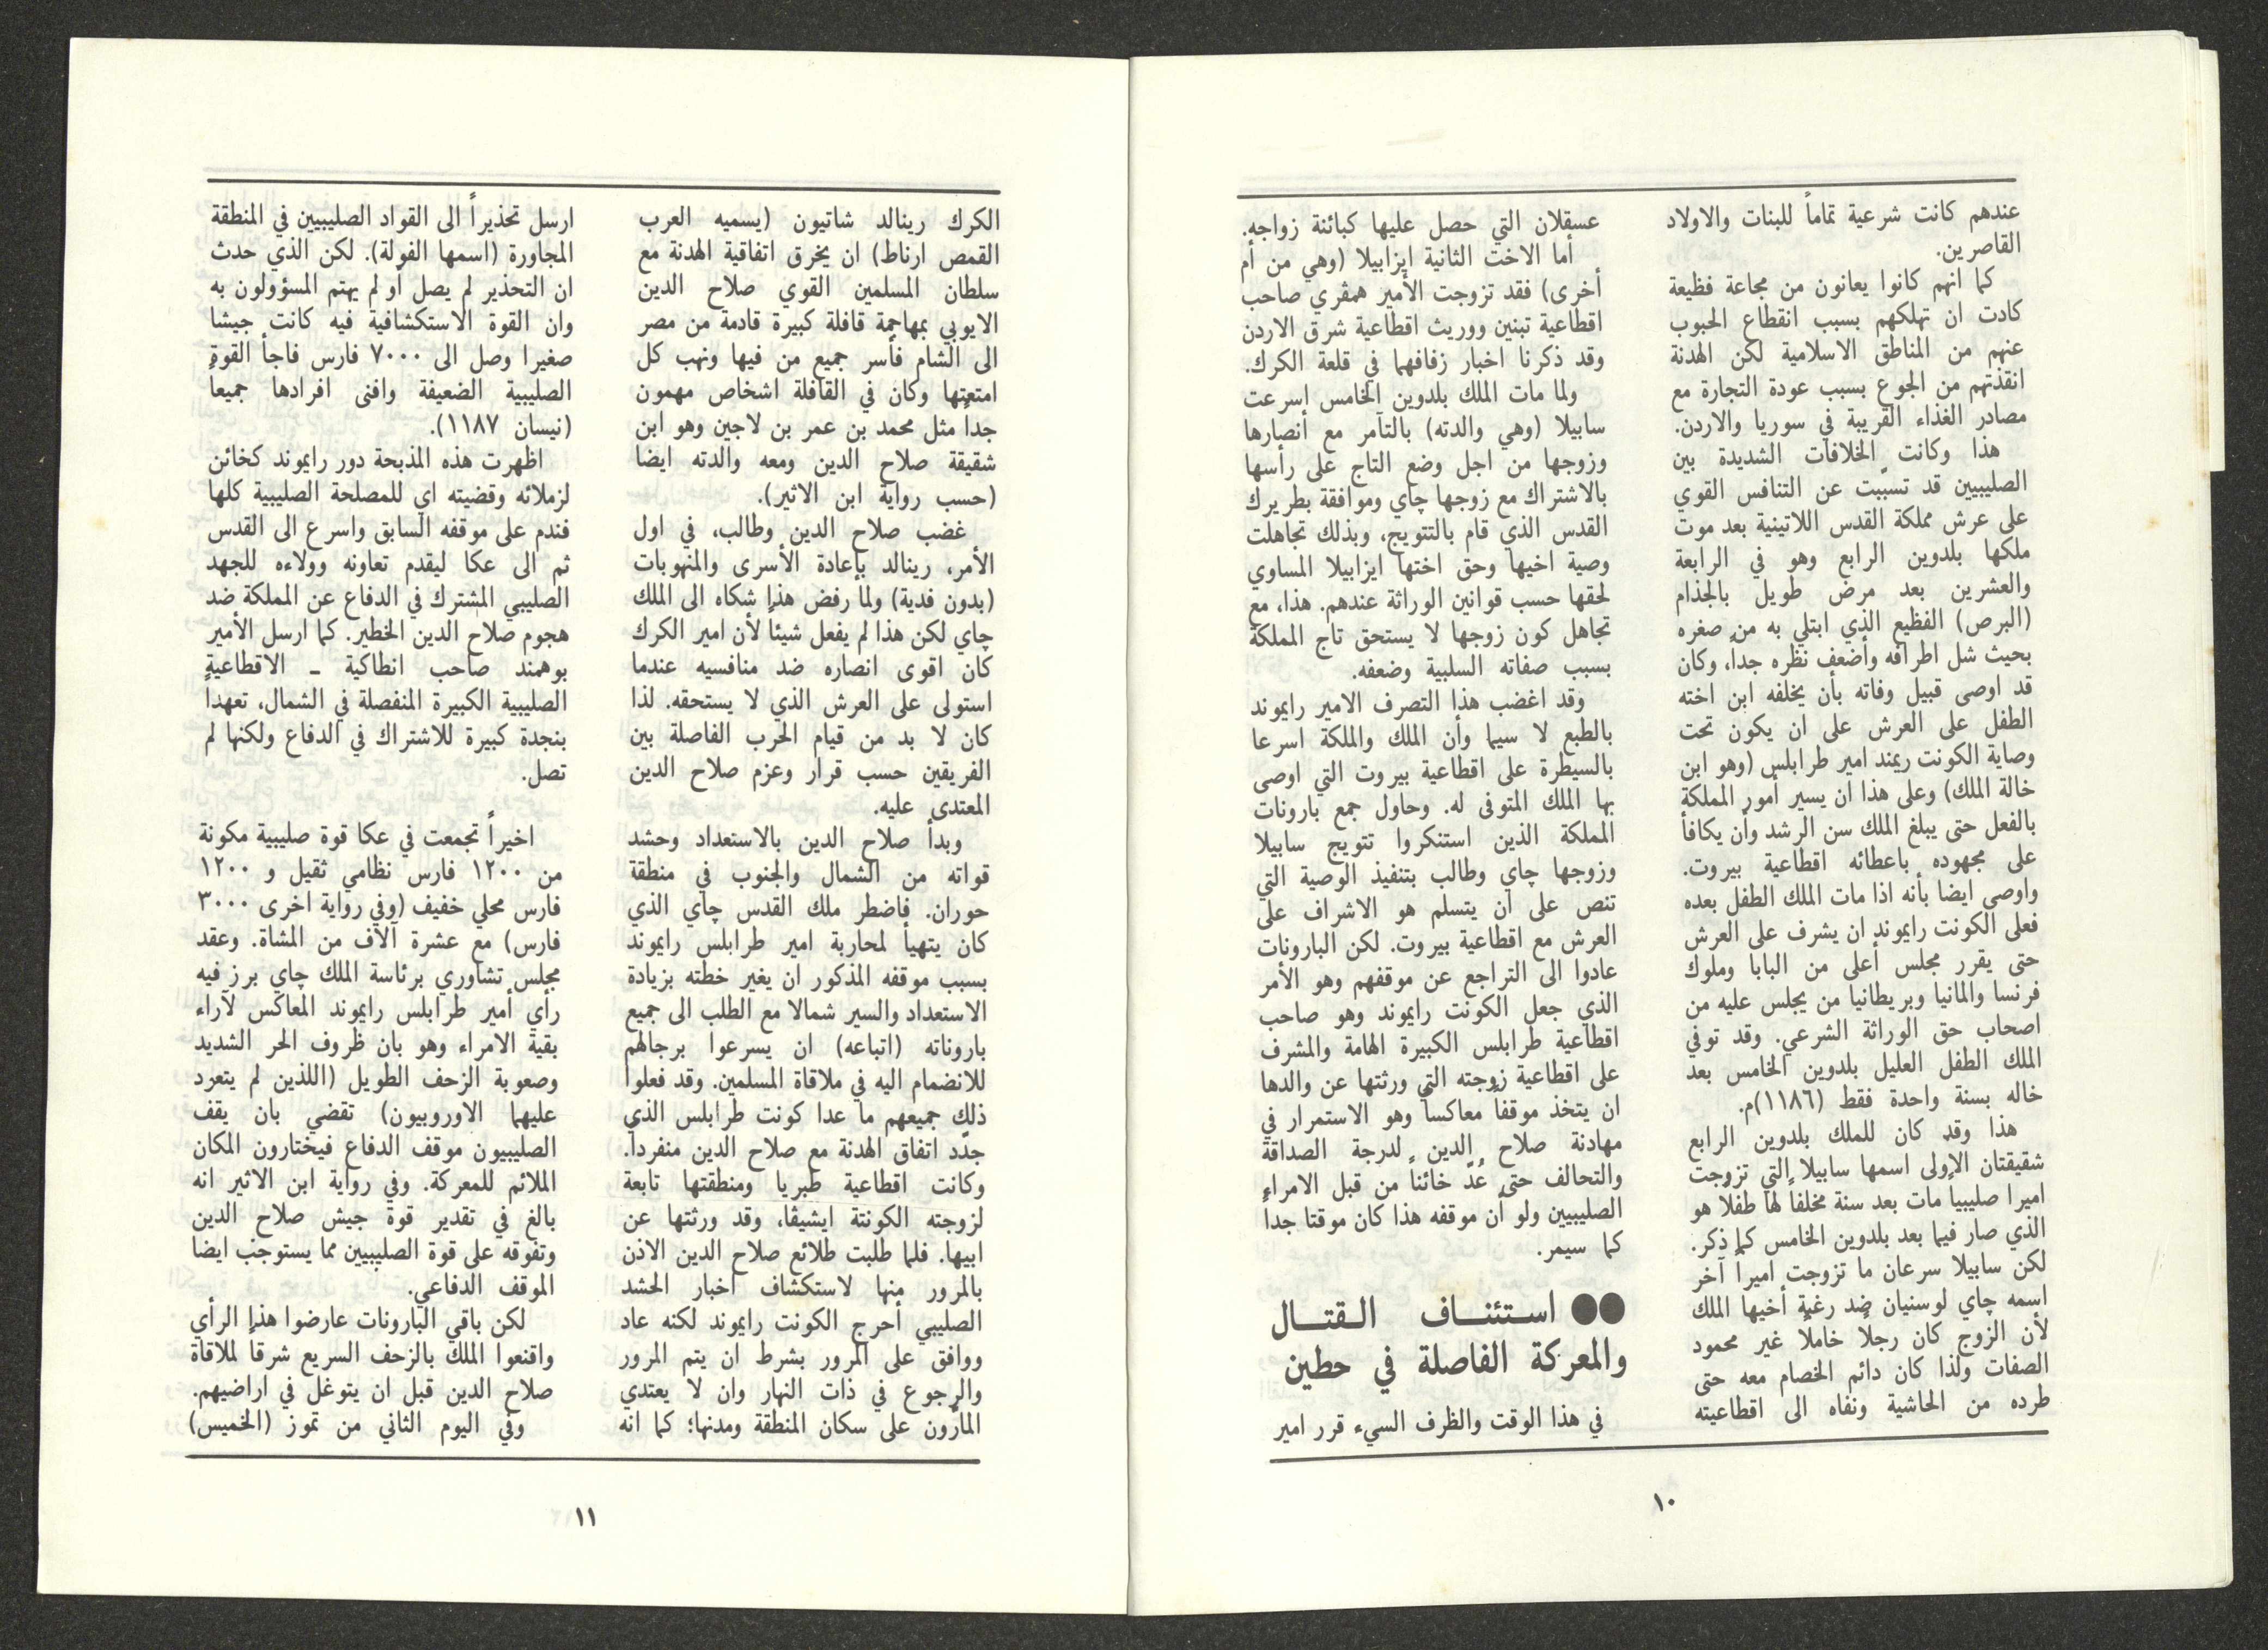 عندهم كانت شرعية تماماً للبنات والاولاد
القاصرين.
كما انهم كانوا يعانون من مجاعة فظيعة
كادت ان تهلكهم بسبب انقطاع الحبوب
عنهم من المناطق الاسلامية لكن الهدنة
انقذتهم من الجوع بسبب عودة التجارة مع
مصادر الغذاء القريبة في سوريا والاردن.
هذا وكانت الخلافات الشديدة بين
الصليبيين قد تسببت عن التنافس القوي
على عرش مملكة القدس اللاتينية بعد موت
ملكها بلدوين الرابع وهو في الرابعة
والعشرين بعد مرض طويل بالجذام
(البرص) الفظيع الذي ابتلي به من صغره
بحيث شل اطرافه وأضعف نظره جداً، وكان
قد اوصى قبيل وفاته بأن يخلفه ابن اخته
الطفل على العرش على ان يكون تحت
وصاية الكونت ريمند امير طرابلس (وهو ابن
خالة الملك) وعلى هذا ان يسير أمور المملكة
بالفعل حتى يبلغ الملك سن الرشد وأن يكافأ
على مجهوده باعطائه اقطاعية بيروت.
واوصى ايضا بأنه اذا مات الملك الطفل بعده
فعلى الكونت رايموند ان يشرف على العرش
حتى يقرر مجلس أعلى من البابا وملوك
فرنسا والمانيا وبريطانيا من يجلس عليه من
اصحاب حق الوراثة الشرعي. وقد توفي
الملك الطفل العليل بلدوين الخامس بعد
خاله بسنة واحدة فقط (١١٨٦)م.
هذا وقد كان للملك بلدوين الرابع
شقيقتان الاولى اسمها سابيلا التي تزوجت
اميرا صليبياً مات بعد سنة مخلفاً لها طفلاً هو
الذي صار فيما بعد بلدوين الخامس كما ذكر.
لكن سابيلا سرعان ما تزوجت اميراً آخر
اسمه چاي لوسنيان ضد رغبة أخيها الملك
لأن الزوج كان رجلاً خاملاً غير محمود
الصفات ولذا كان دائم الخصام معه حتى
طرده من الحاشية ونفاه الى اقطاعيته
عسقلان التي حصل عليها كبائنة زواجه.
أما الاخت الثانية ايزابيلا (وهي من أم
أخرى) فقد تزوجت الأمير همفري صاحب
اقطاعية تبنين ووريث اقطاعية شرق الاردن
وقد ذكرنا اخبار زفافهما في قلعة الكرك.
ولما مات الملك بلدوين الخامس اسرعت
سابيلا (وهي والدته) بالتآمر مع أنصارها
وزوجها من اجل وضع التاج على رأسها
بالاشتراك مع زوجها چاي وموافقة بطريرك
القدس الذي قام بالتتويج، وبذلك تجاهلت
وصية اخيها وحق اختها ايزابيلا المساوي
لحقها حسب قوانين الوراثة عندهم. هذا، مع
تجاهل كون زوجها لا يستحق تاج المملكة
بسبب صفاته السلبية وضعفه.
وقد اغضب هذا التصرف الامير رايموند
بالطبع لا سيما وأن الملك والملكة اسرعا
بالسيطرة على اقطاعية بيروت التي اوصى
بها الملك المتوفى له. وحاول جمع بارونات
المملكة الذين استنكروا تتويج سابيلا
وزوجها چاي وطالب بتنفيذ الوصية التي
تنص على ان يتسلم هو الاشراف على
العرش مع اقطاعية بيروت. لكن البارونات
عادوا الى التراجع عن موقفهم وهو الأمر
الذي جعل الكونت رايموند وهو صاحب
اقطاعية طرابلس الكبيرة الهامة والمشرف
على اقطاعية زوجته التي ورثتها عن والدها
ان يتخذ موقفاً معاكساً وهو الاستمرار في
مهادنة صلاح الدين لدرجة الصداقة
والتحالف حتى عُدّ خائناً من قبل الامراء
الصليبيين ولو أن موقفه هذا كان موقتا جداً
كما سيمر.
●● استئناف القتال
والمعركة الفاصلة في حطين
في هذا الوقت والظرف السيء قرر امير
١٠
الكرك رينالد شاتيون (يسميه العرب
القمص ارناط) ان يخرق اتفاقية الهدنة مع
سلطان المسلمين القوي صلاح الدين
الايوبي بمهاجمة قافلة كبيرة قادمة من مصر
الى الشام فأسر جميع من فيها ونهب كل
امتعتها وكان في القافلة اشخاص مهمون
جداً مثل محمد بن عمر بن لاجين وهو ابن
شقيقة صلاح الدين ومعه والدته ايضا
(حسب رواية ابن الاثير).
غضب صلاح الدين وطالب، في اول
الأمر، رينالد بإعادة الأسرى والمنهوبات
(بدون فدية) ولما رفض هذا شكاه الى الملك
چاي لكن هذا لم يفعل شيئا لأن امير الكرك
كان اقوى انصاره ضد منافسيه عندما
استولى على العرش الذي لا يستحقه. لذا
كان لا بد من قيام الحرب الفاصلة بين
الفريقين حسب قرار وعزم صلاح الدين
المعتدى عليه.
وبدأ صلاح الدين بالاستعداد وحشد
قواته من الشمال والجنوب في منطقة
حوران. فاضطر ملك القدس چاي الذي
كان يتهيأ لمحاربة امير طرابلس رايموند
بسبب موقفه المذكور ان يغير خطته بزيادة
الاستعداد والسير شمالا مع الطلب الى جميع
باروناته (اتباعه) ان يسرعوا برجالهم
للانضمام اليه في ملاقاة المسلمين. وقد فعلوا
ذلك جميعهم ما عدا كونت طرابلس الذي
جدّد اتفاق الهدنة مع صلاح الدين منفرداً.
وكانت اقطاعية طبريا ومنطقتها تابعة
لزوجته الكونتة ايشيڤا، وقد ورثتها عن
ابيها. فلما طلبت طلائع صلاح الدين الاذن
بالمرور منها لاستكشاف اخبار الحشد
الصليبي أحرج الكونت رايموند لكنه عاد
ووافق على المرور بشرط ان يتم المرور
والرجوع في ذات النهار وان لا يعتدي
المارّون على سكان المنطقة ومدنها؛ كما انه
ارسل تحذيراً الى القواد الصليبيين في المنطقة
المجاورة (اسمها الفولة). لكن الذي حدث
ان التحذير لم يصل أو لم يهتم المسؤولون به
وان القوة الاستكشافية فيه كانت جيشا
صغيرا وصل الى ٧٠٠٠ فارس فاجأ القوة
الصليبية الضعيفة وافنى افرادها جميعاً
(نيسان ١١٨٧).
اظهرت هذه المذبحة دور رايموند كخائن
لزملائه وقضيته اي للمصلحة الصليبية كلها
فندم على موقفه السابق واسرع الى القدس
ثم الى عكا ليقدم تعاونه وولاءه للجهد
الصليبي المشترك في الدفاع عن المملكة ضد
هجوم صلاح الدين الخطير. كما ارسل الأمير
بوهمند صاحب انطاكية ـ الاقطاعية
الصليبية الكبيرة المنفصلة في الشمال، تعهداً
بنجدة كبيرة للاشتراك في الدفاع ولكنها لم
تصل.
اخيراً تجمعت في عكا قوة صليبية مكونة
من ١٢٠٠ فارس نظامي ثقيل و ١٢٠٠
فارس محلي خفيف (وفي رواية اخرى ٣٠٠٠
فارس) مع عشرة آلاف من المشاة. وعقد
مجلس تشاوري برئاسة الملك چاي برز فيه
رأي أمير طرابلس رايموند المعاكس لآراء
بقية الامراء وهو بان ظروف الحر الشديد
وصعوبة الزحف الطويل (اللذين لم يتعرد
عليهما الاوروبيون) تقضي بان يقف
الصليبيون موقف الدفاع فيختارون المكان
الملائم للمعركة. وفي رواية ابن الاثير انه
بالغ في تقدير قوة جيش صلاح الدين
وتفوقه على قوة الصليبيين مما يستوجب ايضا
الموقف الدفاعي.
لكن باقي البارونات عارضوا هذا الرأي
واقنعوا الملك بالزحف السريع شرقاً لملاقاة
صلاح الدين قبل ان يتوغل في اراضيهم.
وفي اليوم الثاني من تموز (الخميس)
١١